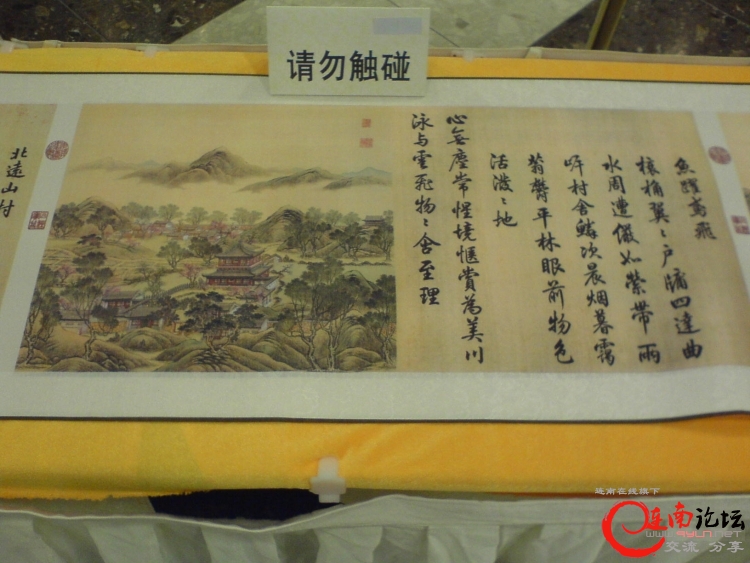 请勿触碰
魚躍鳶飛
榱桷翼〻户牖四達曲
水周遭儼如縈帶兩
岸村舍鱗次晨烟暮靄
蓊鬱平林眼前物色
活潑〻地
心無塵常惺境愜賞為美川
泳與雲飛物〻含至理
北遠山村
连南在线旗下
连南论坛
交流 分享